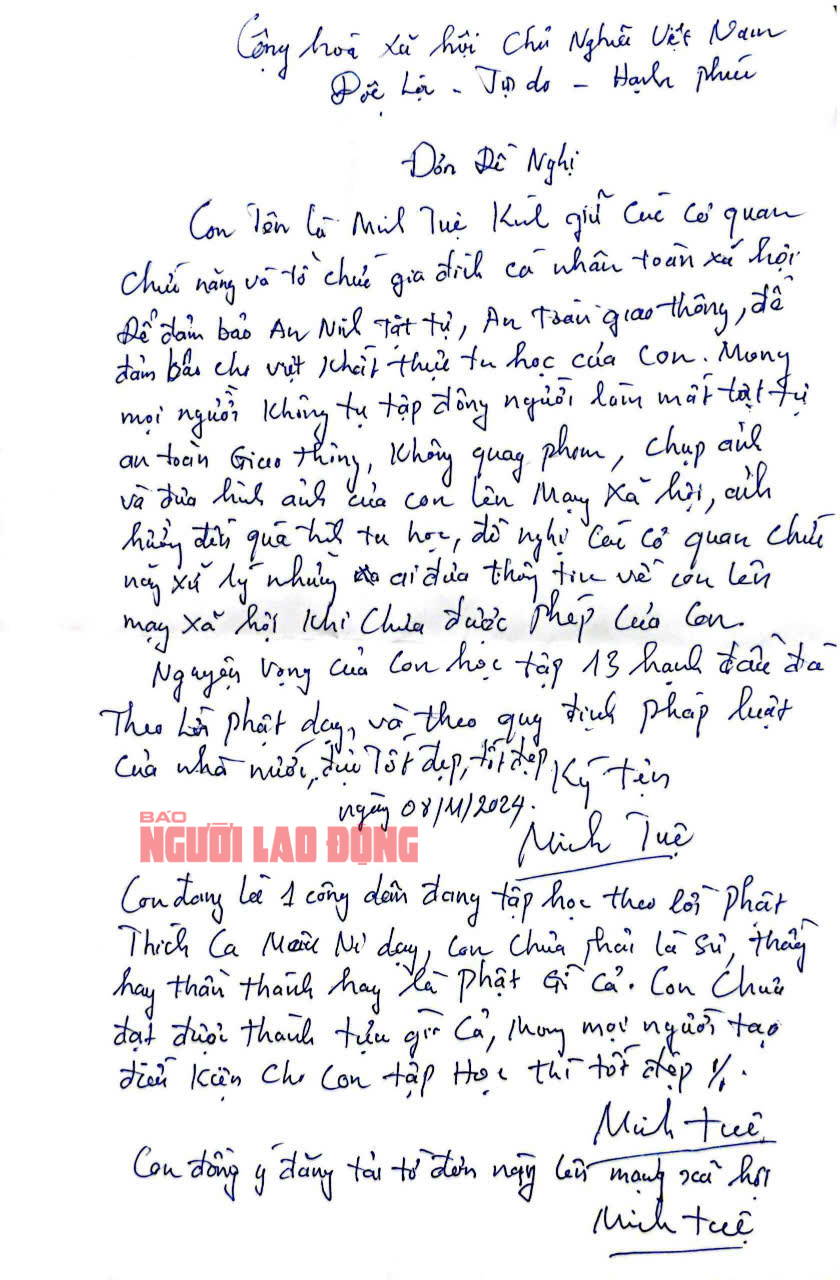 Cộng hoà xã hội Chủ Nghĩa Việt Nam
Độc Lập - Tự do - Hạnh phúc
Đơn Đề Nghị
Con Tên là Minh Tuệ Kính gửi Các Cơ quan
Chức năng và tổ chức gia đình cá nhân toàn xã hội
Để đảm bảo An Ninh Tật tự, An Toàn giao thông, để
đảm bảo cho việt Khất thực tu học của Con. Mong
mọi người Không tụ tập đông người làm mất tật tự
an toàn Giao thông, Không quay phim, Chụp ảnh
và đưa hình ảnh của con lên Mạng Xã hội, ảnh
hưởng đến quá trình tu học, đề nghị Các Cơ quan Chức
năng xử lý những ai đưa thông tin về con lên
mạng xã hội Khi Chưa được phép Của Con.
Nguyện Vọng Của Con học tập 13 hạnh đầu đà
Theo Lời phật dạy, và theo quy định pháp luật
Của nhà nước, được Tốt đẹp, tốt đẹp
Ký tên
ngày 08/11/2024.
BÁO
NGƯỜI LAO ĐỘNG
Minh Tuệ
Con đang là 1 công dân đang tập học theo lời phật
Thích Ca Mâu Ni dạy, con Chưa phải là sư, thầy
hay thần thánh hay là Phật Gì Cả. Con Chưa
đạt được thành tựu gì Cả, Mong mọi người tạo
điều Kiện Cho Con tập Học thì tốt đẹp ./.
Minh Tuệ
Con đồng ý đăng tải tờ đơn này lên mạng xã hội
Minh Tuệ